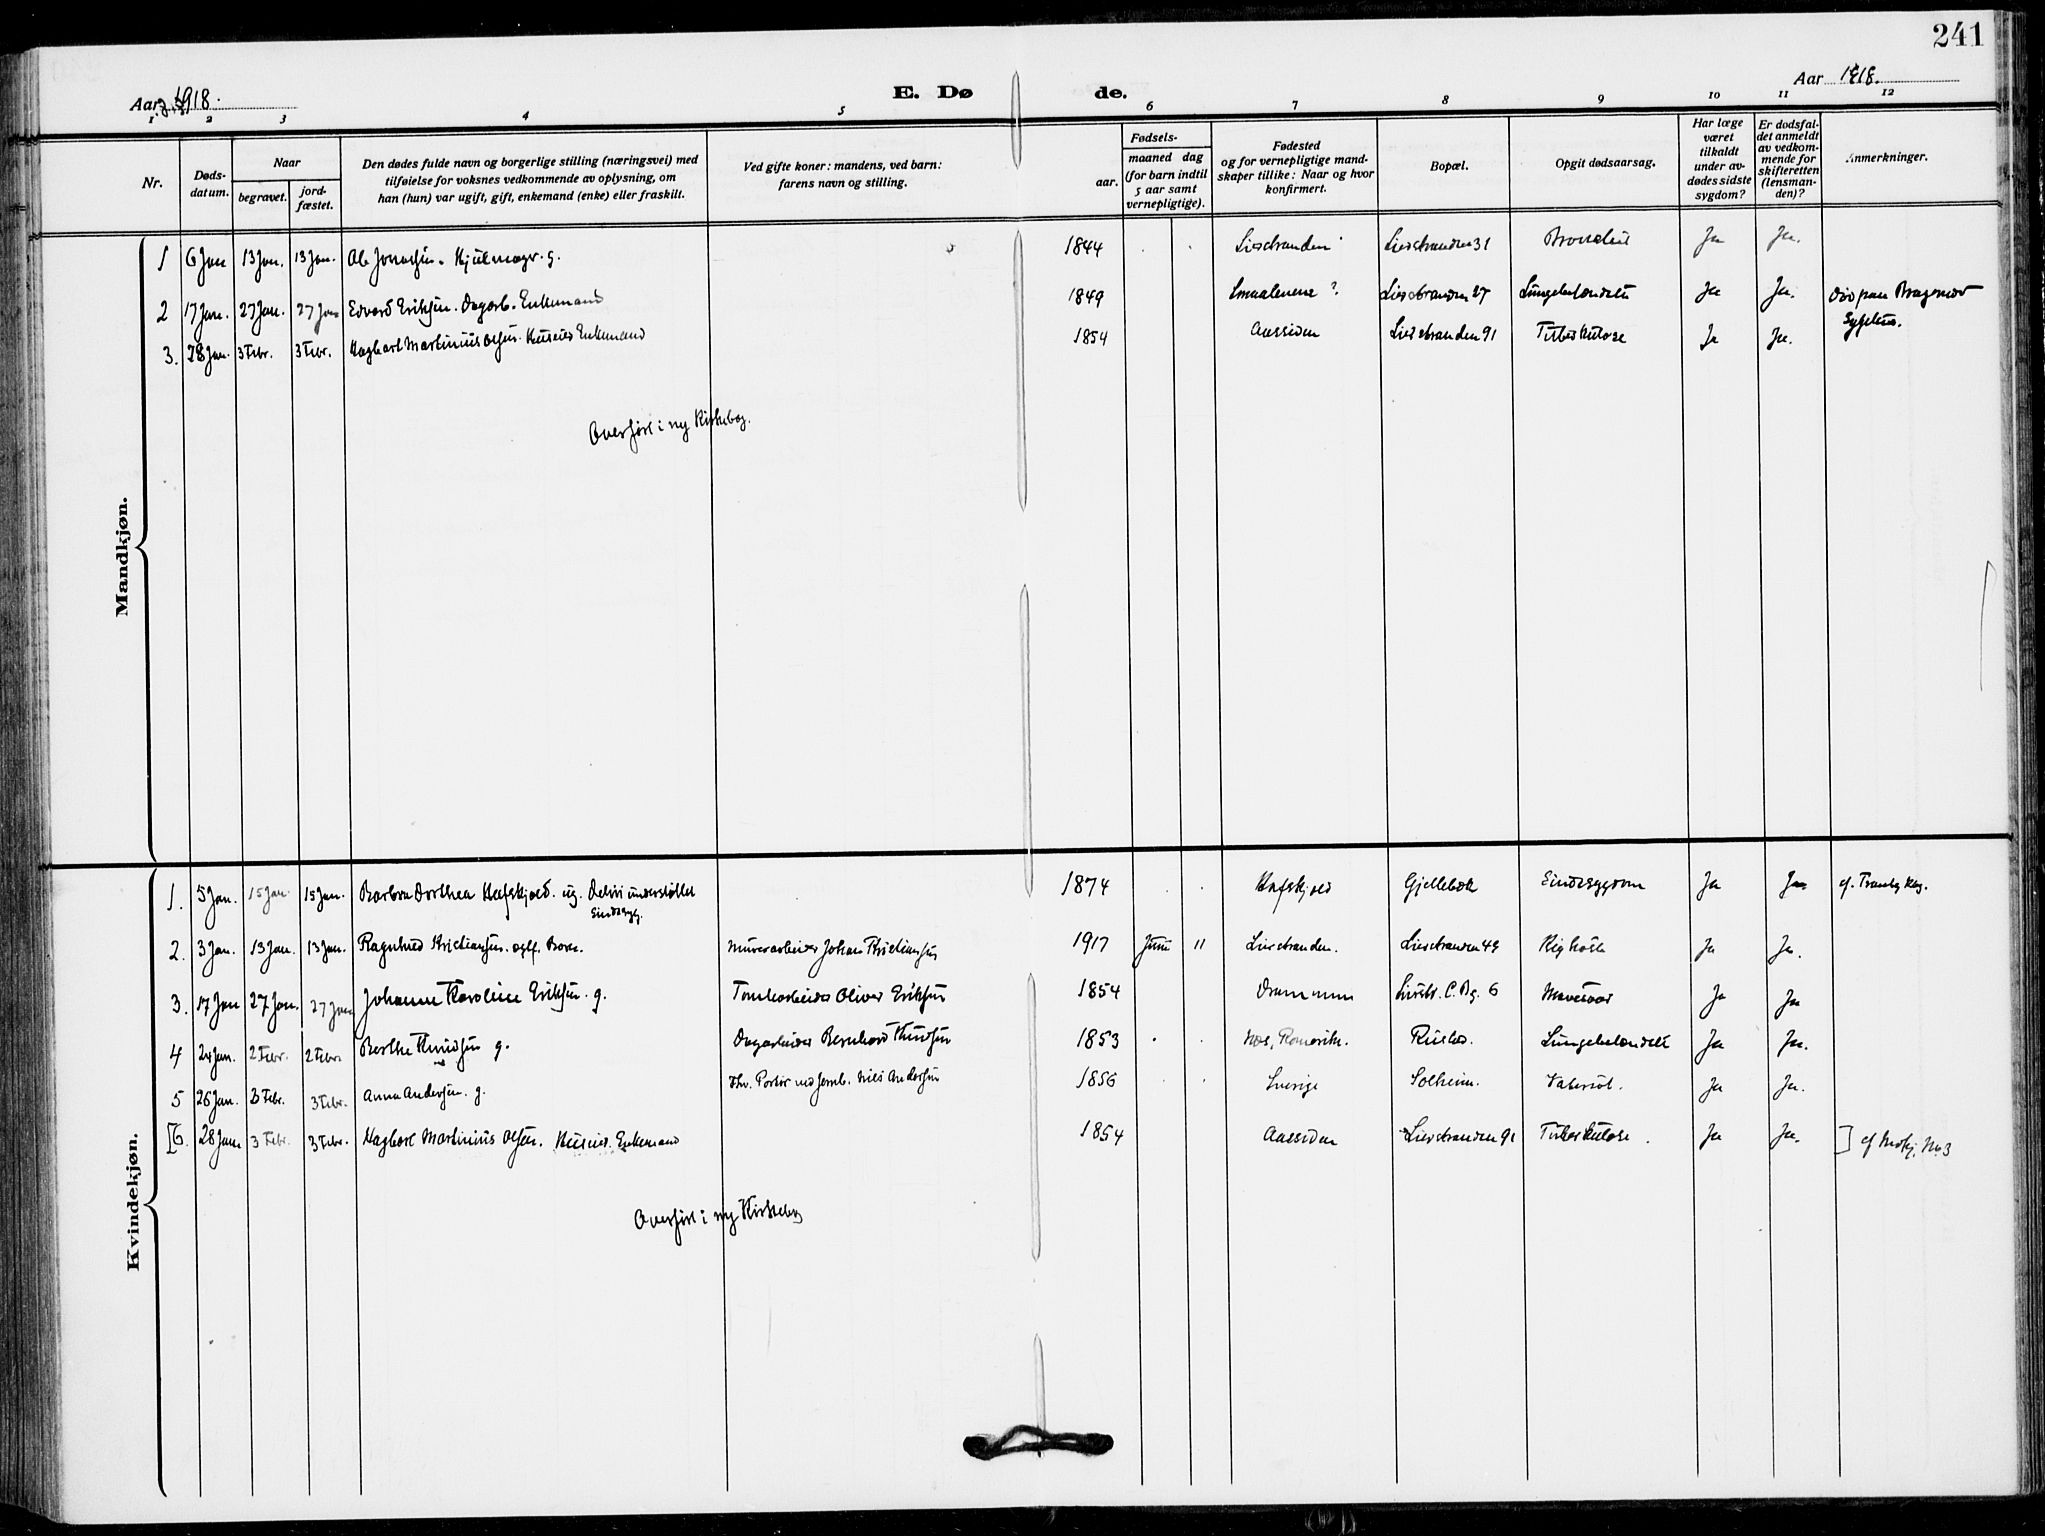 241
Aar 1918.
E. Døde.
Aar 1918.
1 2 3 4 5 6 7 8 9 10 11 12
Nr.
Døds-
datum.
Naar
begravet.
jord-
fæstet.
Den dødes fulde navn og borgerlige stilling (næringsvei) med
tilføielse for voksnes vedkommende av oplysning, om
han (hun) var ugift, gift, enkemand (enke) eller fraskilt.
Ved gifte koner: mandens, ved barn:
farens navn og stilling.
Fødsels-
aar.
maaned dag
(for barn indtil
5 aar samt
vernepligtige).
Fødested
og for vernepligtige mand-
skaper tillike: Naar og hvor
konfirmert.
Bopæl.
Opgit dødsaarsag.
Har læge
været
tilkaldt
under av-
dødes sidste
sygdom?
Er dødsfal-
det anmeldt
av vedkom-
mende for
skifteretten
(lensman-
den)?
Anmerkninger.
Mandkjøn.
1 6 Jan 13 Jan. 13 Jan. Ole Hjulmager. g. 1844 Lierstranden Lierstranden 31 Ja Ja.
2 17 Jan. 27 Jan. 27 Jan Edvard Eriksen. Dagarb. Enkemand 1849 Smaalenene ? Lierstranden 27 Lungebetændelse Ja Ja. Død paa Bragernes
Sygehus.
3. 28 Jan. 3 Febr. 3 Febr. Hagbart Martinius Olsen. Huseier Enkemand 1854 Aassiden Lierstranden 91 Tuberkulose Ja Ja.
Overført i ny Kirkebog.
Kvindekjøn.
1. 5 Jan. 15 Jan 15 Jan. Barbra Dorthea Hafskjold. ug. understøttet
Sindssyg. 1874 Hafskjold Gjellebæk Sindssygdom Ja Ja cf. Tranby Kbg.
2. 3 Jan. 13 Jan. 13 Jan. Ragnhild Kristiansen. Barn. Murerarbeider Johan Kristiansen 1917 Juni 11 Lierstranden. Lierstranden 49 Kighoste Ja Ja.
3. 17 Jan 27 Jan. 27 Jan Johanne Karoline Eriksen. g. Tomtearbeider Oliver Eriksen 1854 Drammen 6 Mavesaar Ja Ja
4 24 Jan. 2 Febr. 2 Febr. Berthe Knudsen g. Dagarbeider Bernhard Knudsen 1853 Nes, Romerike. Lungebetændelse Ja Ja.
5 26 Jan. 3 Febr. 3 Febr. Anna Andersen. g. fhv. Portør ved Jernb. Nils Andersen 1856 Sverige Solheim. Ja Ja.
[6. 28 Jan 3 Febr. 3 Febr. Hagbart Martinius Olsen. Huseier. Enkemand 1854 Aassiden Lierstranden 91 Tuberkulose. Ja Ja. ] cf Mdkj. Nr. 3
Overført i ny Kirkebog